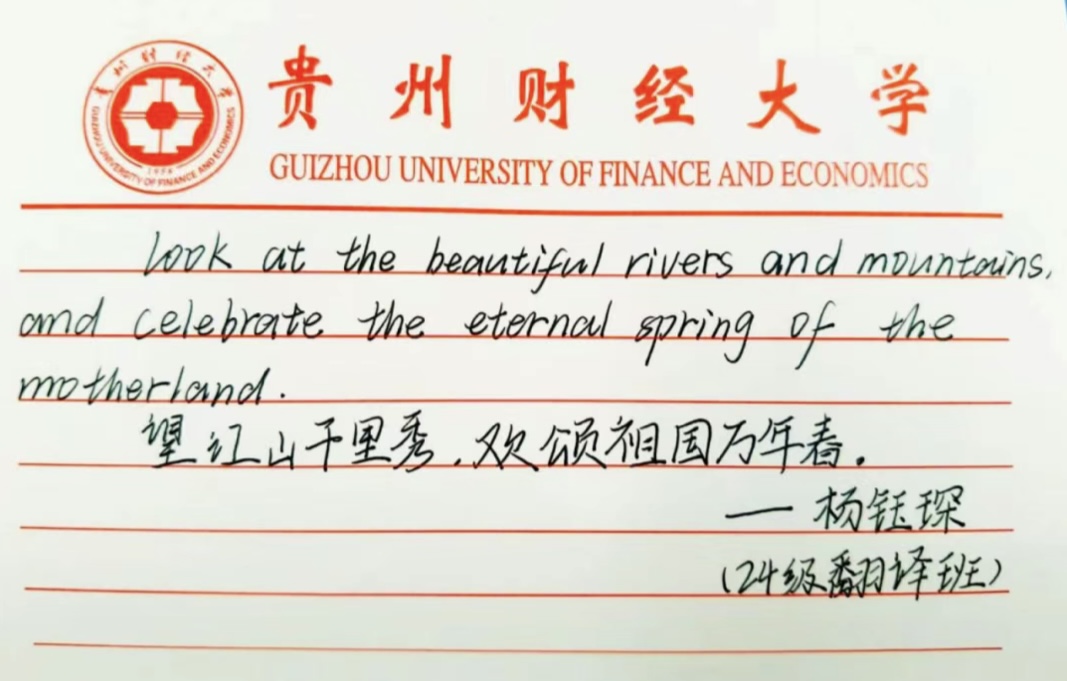 贵州财经大学
GUIZHOU UNIVERSITY OF FINANCE AND ECONOMICS
贵州财经大学
GUIZHOU UNIVERSITY OF FINANCE AND ECONOMICS
Look at the beautiful rivers and mountains,
and celebrate the eternal spring of the
motherland.
望江山千里秀,欢颂祖国万年春。
— 杨钰琛
(24级翻译班)